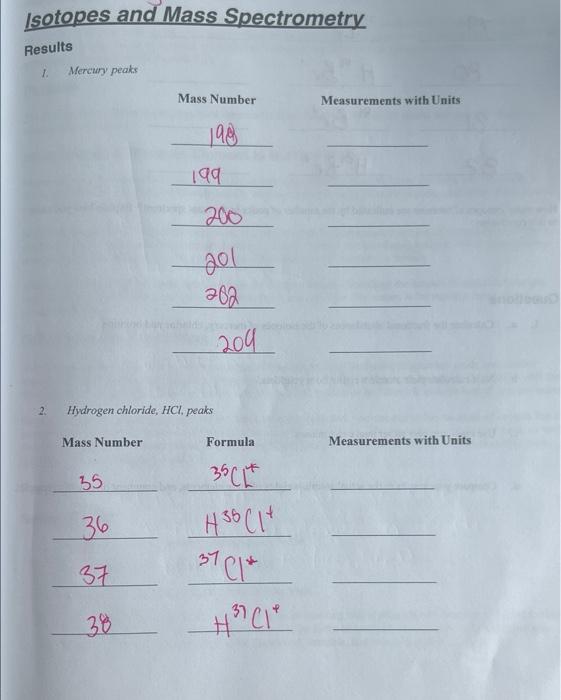 Isotopes and Mass Spectrometry
Results
1. Mercury peaks
Mass Number Measurements with Units
198
199
200
201
202
204
2. Hydrogen chloride, HCl, peaks
Mass Number Formula Measurements with Units
35 ³⁵Cl⁺
36 H³⁵Cl⁺
37 ³⁷Cl⁺
38 H³⁷Cl⁺